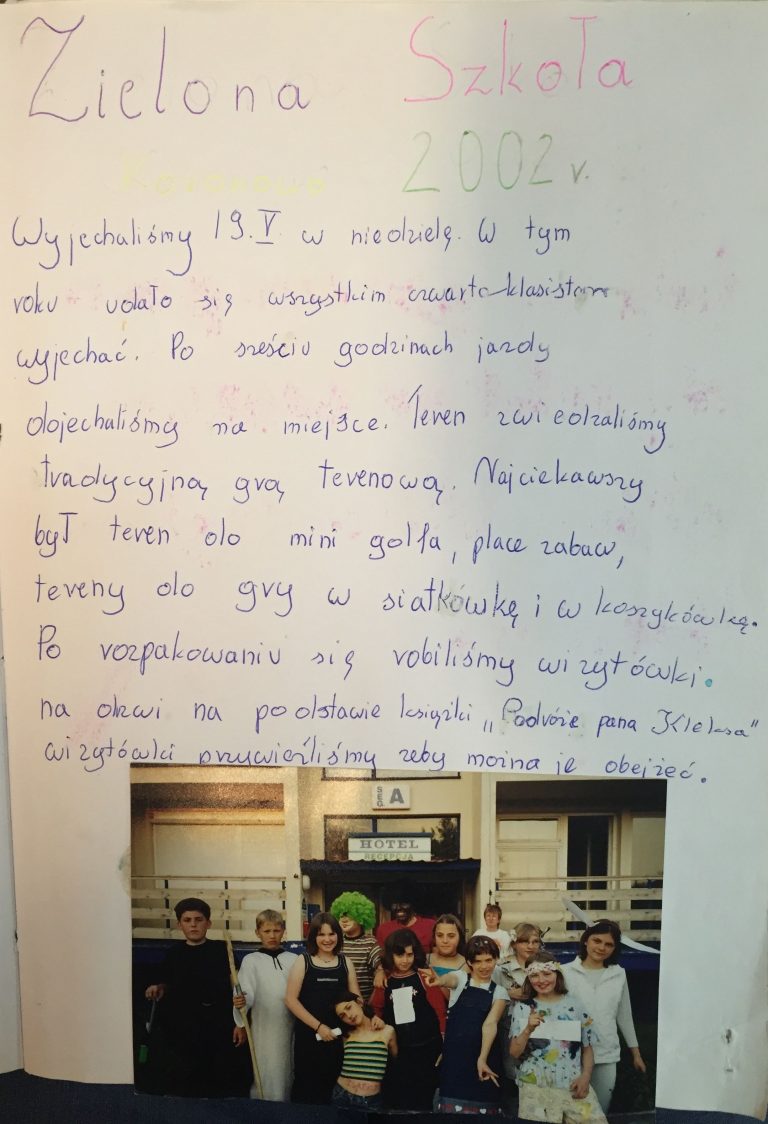 Zielona Szkoła
Koronowo 2002 r.
Wyjechaliśmy 19.V w niedzielę. W tym
roku udało się wszystkim czwarto-klasistom
wyjechać. Po sześciu godzinach jazdy
dojechaliśmy na miejsce. Teren zwiedzaliśmy
tradycyjną grą terenową. Najciekawszy
był teren do mini golfa, place zabaw,
tereny do gry w siatkówkę i w koszykówkę.
Po rozpakowaniu się robiliśmy wizytówki.
na drzwi na podstawie książki „Podróże pana Kleksa"
wizytówki przywieźliśmy żeby można je obejżeć.
SEG. A
HOTEL
RECEPCJA